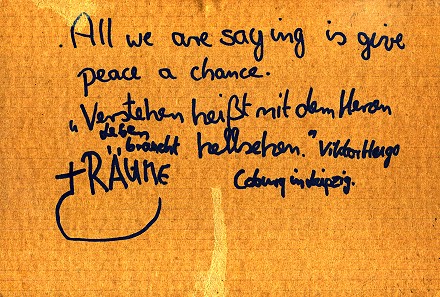 . All we are saying is give
peace a chance.
"Verstehen heißt mit dem Herzen
Leben braucht hellsehen." Viktor Hugo
tRÄUME Coburg in Leipzig.